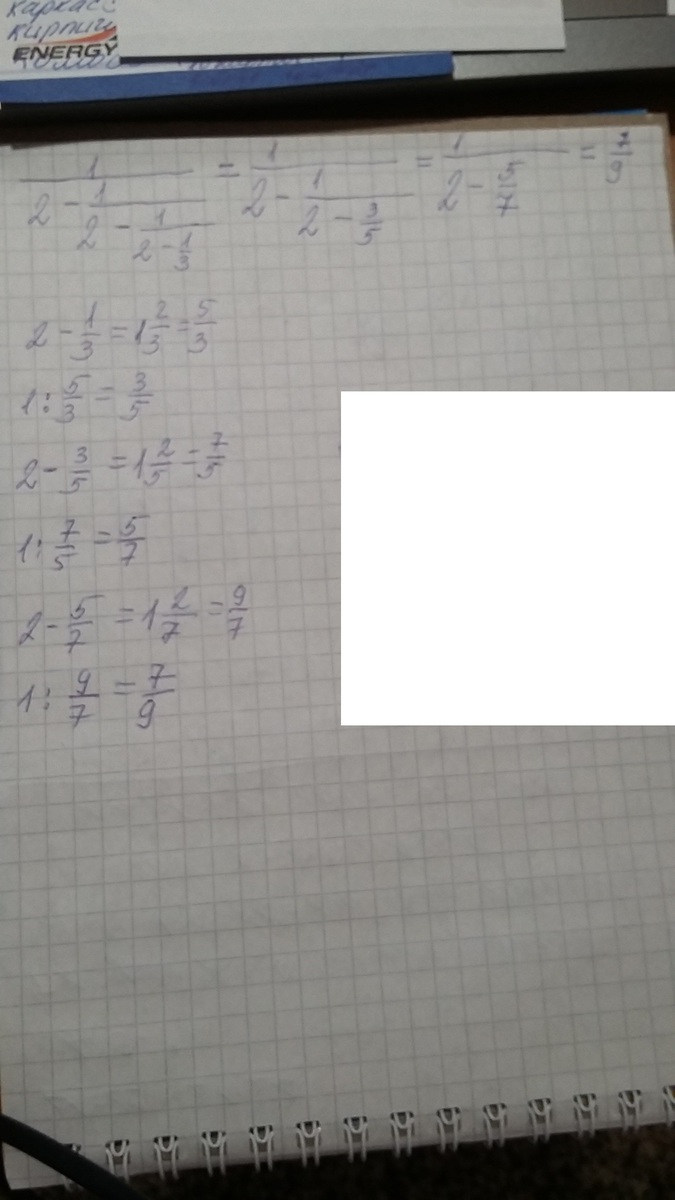 каркасс
кирпич
ENERGY
1/(2 - 1/(2 - 1/(2 - 1/3))) = 1/(2 - 1/(2 - 3/5)) = 1/(2 - 5/7) = 7/9
2 - 1/3 = 1 2/3 = 5/3
1 : 5/3 = 3/5
2 - 3/5 = 1 2/5 = 7/5
1 : 7/5 = 5/7
2 - 5/7 = 1 2/7 = 9/7
1 : 9/7 = 7/9